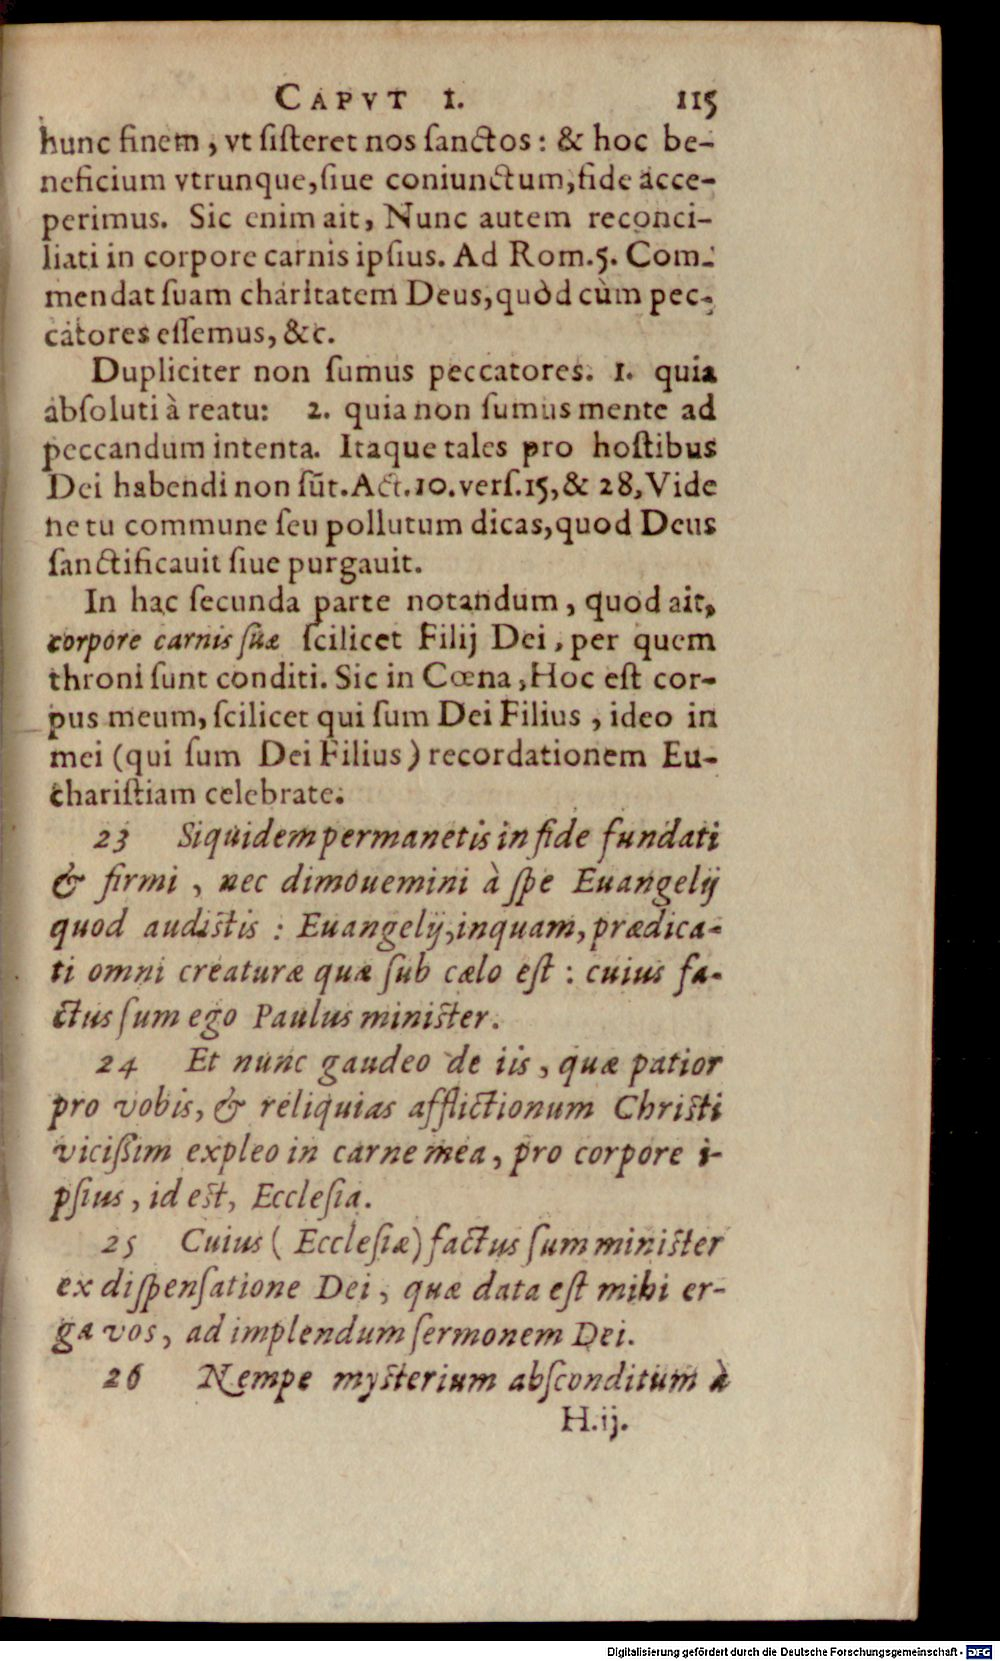 CAPVT I. 115
hunc finem, vt ſiſteret nos ſanctos: & hoc be-
neficium vtrunque, ſiue coniunctum, fide acce-
perimus. Sic enim ait, Nunc autem reconci-
liati in corpore carnis ipſius. Ad Rom. 5. Com-
mendat ſuam charitatem Deus, quòd cùm pec-
catores eſſemus, &c.
Dupliciter non ſumus peccatores. 1. quia
abſoluti à reatu: 2. quia non ſumus mente ad
peccandum intenta. Itaque tales pro hoſtibus
Dei habendi non sūt. Act. 10. verſ. 15, & 28, Vide
ne tu commune ſeu pollutum dicas, quod Deus
ſanctificauit ſiue purgauit.
In hac ſecunda parte notandum, quod ait,
corpore carnis ſuæ ſcilicet Filij Dei, per quem
throni ſunt conditi. Sic in Cœna, Hoc eſt cor-
pus meum, ſcilicet qui ſum Dei Filius, ideo in
mei (qui ſum Dei Filius) recordationem Eu-
chariſtiam celebrate.
23 Siquidem permanetis in fide fundati
& firmi, nec dimouemini à ſpe Euangelij
quod audiſtis: Euangelij, inquam, prædica-
ti omni creaturæ quæ ſub cælo eſt: cuius fa-
ctus ſum ego Paulus miniſter.
24 Et nunc gaudeo de iis, quæ patior
pro vobis, & reliquias afflictionum Chriſti
viciſſim expleo in carne mea, pro corpore i-
pſius, id eſt, Eccleſia.
25 Cuius (Eccleſiæ) factus ſum miniſter
ex diſpenſatione Dei, quæ data eſt mihi er-
ga vos, ad implendum ſermonem Dei.
26 Nempe myſterium abſconditum à
H.ij.
Digitalisierung gefördert durch die Deutsche Forschungsgemeinschaft - DFG